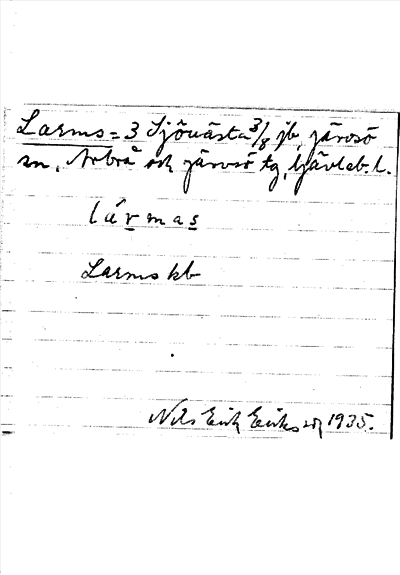 Larms = 3 Sjövästa 3/8 jb, Järvsö
sn, Arbrå och Järvsö tg, Gävleb. l.
lármas
Larms kb
Nils Erik Eriksson 1935.